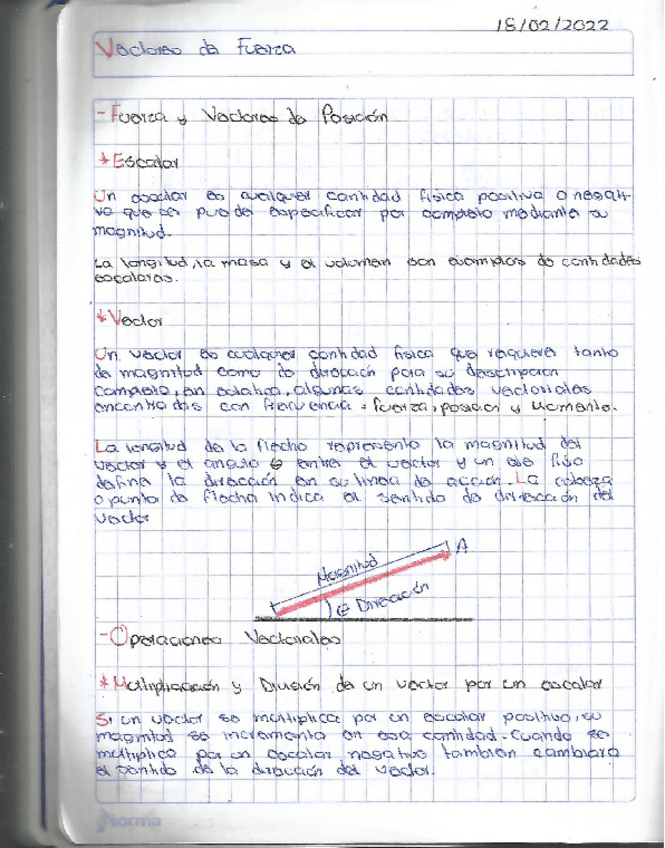 18/02/2022
Vectores de Fuerza
- Fuerza y Vectores de Posición
* Escalar
Un escalar es cualquier cantidad física positiva o negati-
va que se puede especificar por completo mediante su
magnitud.
La longitud, la masa y el volumen son ejemplos de cantidades
escalares.
* Vector
Un vector es cualquier cantidad física que requiere tanto
de magnitud como de dirección para su descripción
completa, en estática, algunas cantidades vectoriales
encontradas con frecuencia = fuerza, posición y Momento.
La longitud de la flecha representa la magnitud del
vector y el angulo θ entre el vector y un eje fijo
define la dirección en su linea de acción. La cabeza
o punta de flecha indica el sentido de dirección del
vector
Magnitud A
θ Dirección
- Operaciones Vectoriales
* Multiplicación y División de un vector por un escalar
Si un vector se multiplica por un escalar positivo, su
magnitud se incrementa en esa cantidad. Cuando se
multiplica por un escalar negativo tambien cambiara
el sentido de la dirección del vector.
Norma